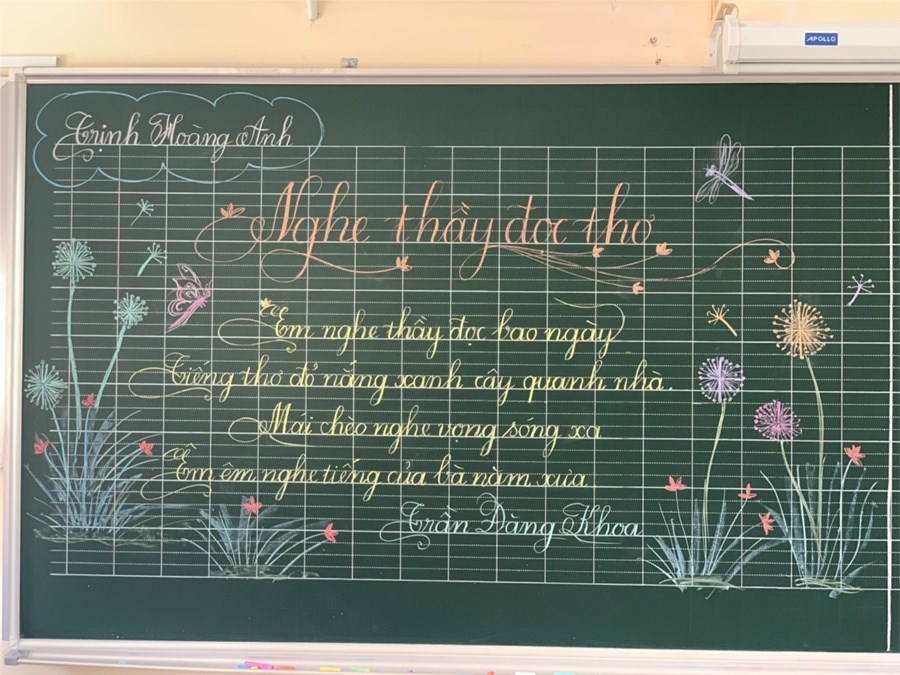 APOLLO
Trịnh Hoàng Anh
Nghe thầy đọc thơ
Em nghe thầy đọc bao ngày
Tiếng thơ đỏ nắng xanh cây quanh nhà.
Mái chèo nghe vọng sóng xa
Êm êm nghe tiếng của bà năm xưa
Trần Đăng Khoa